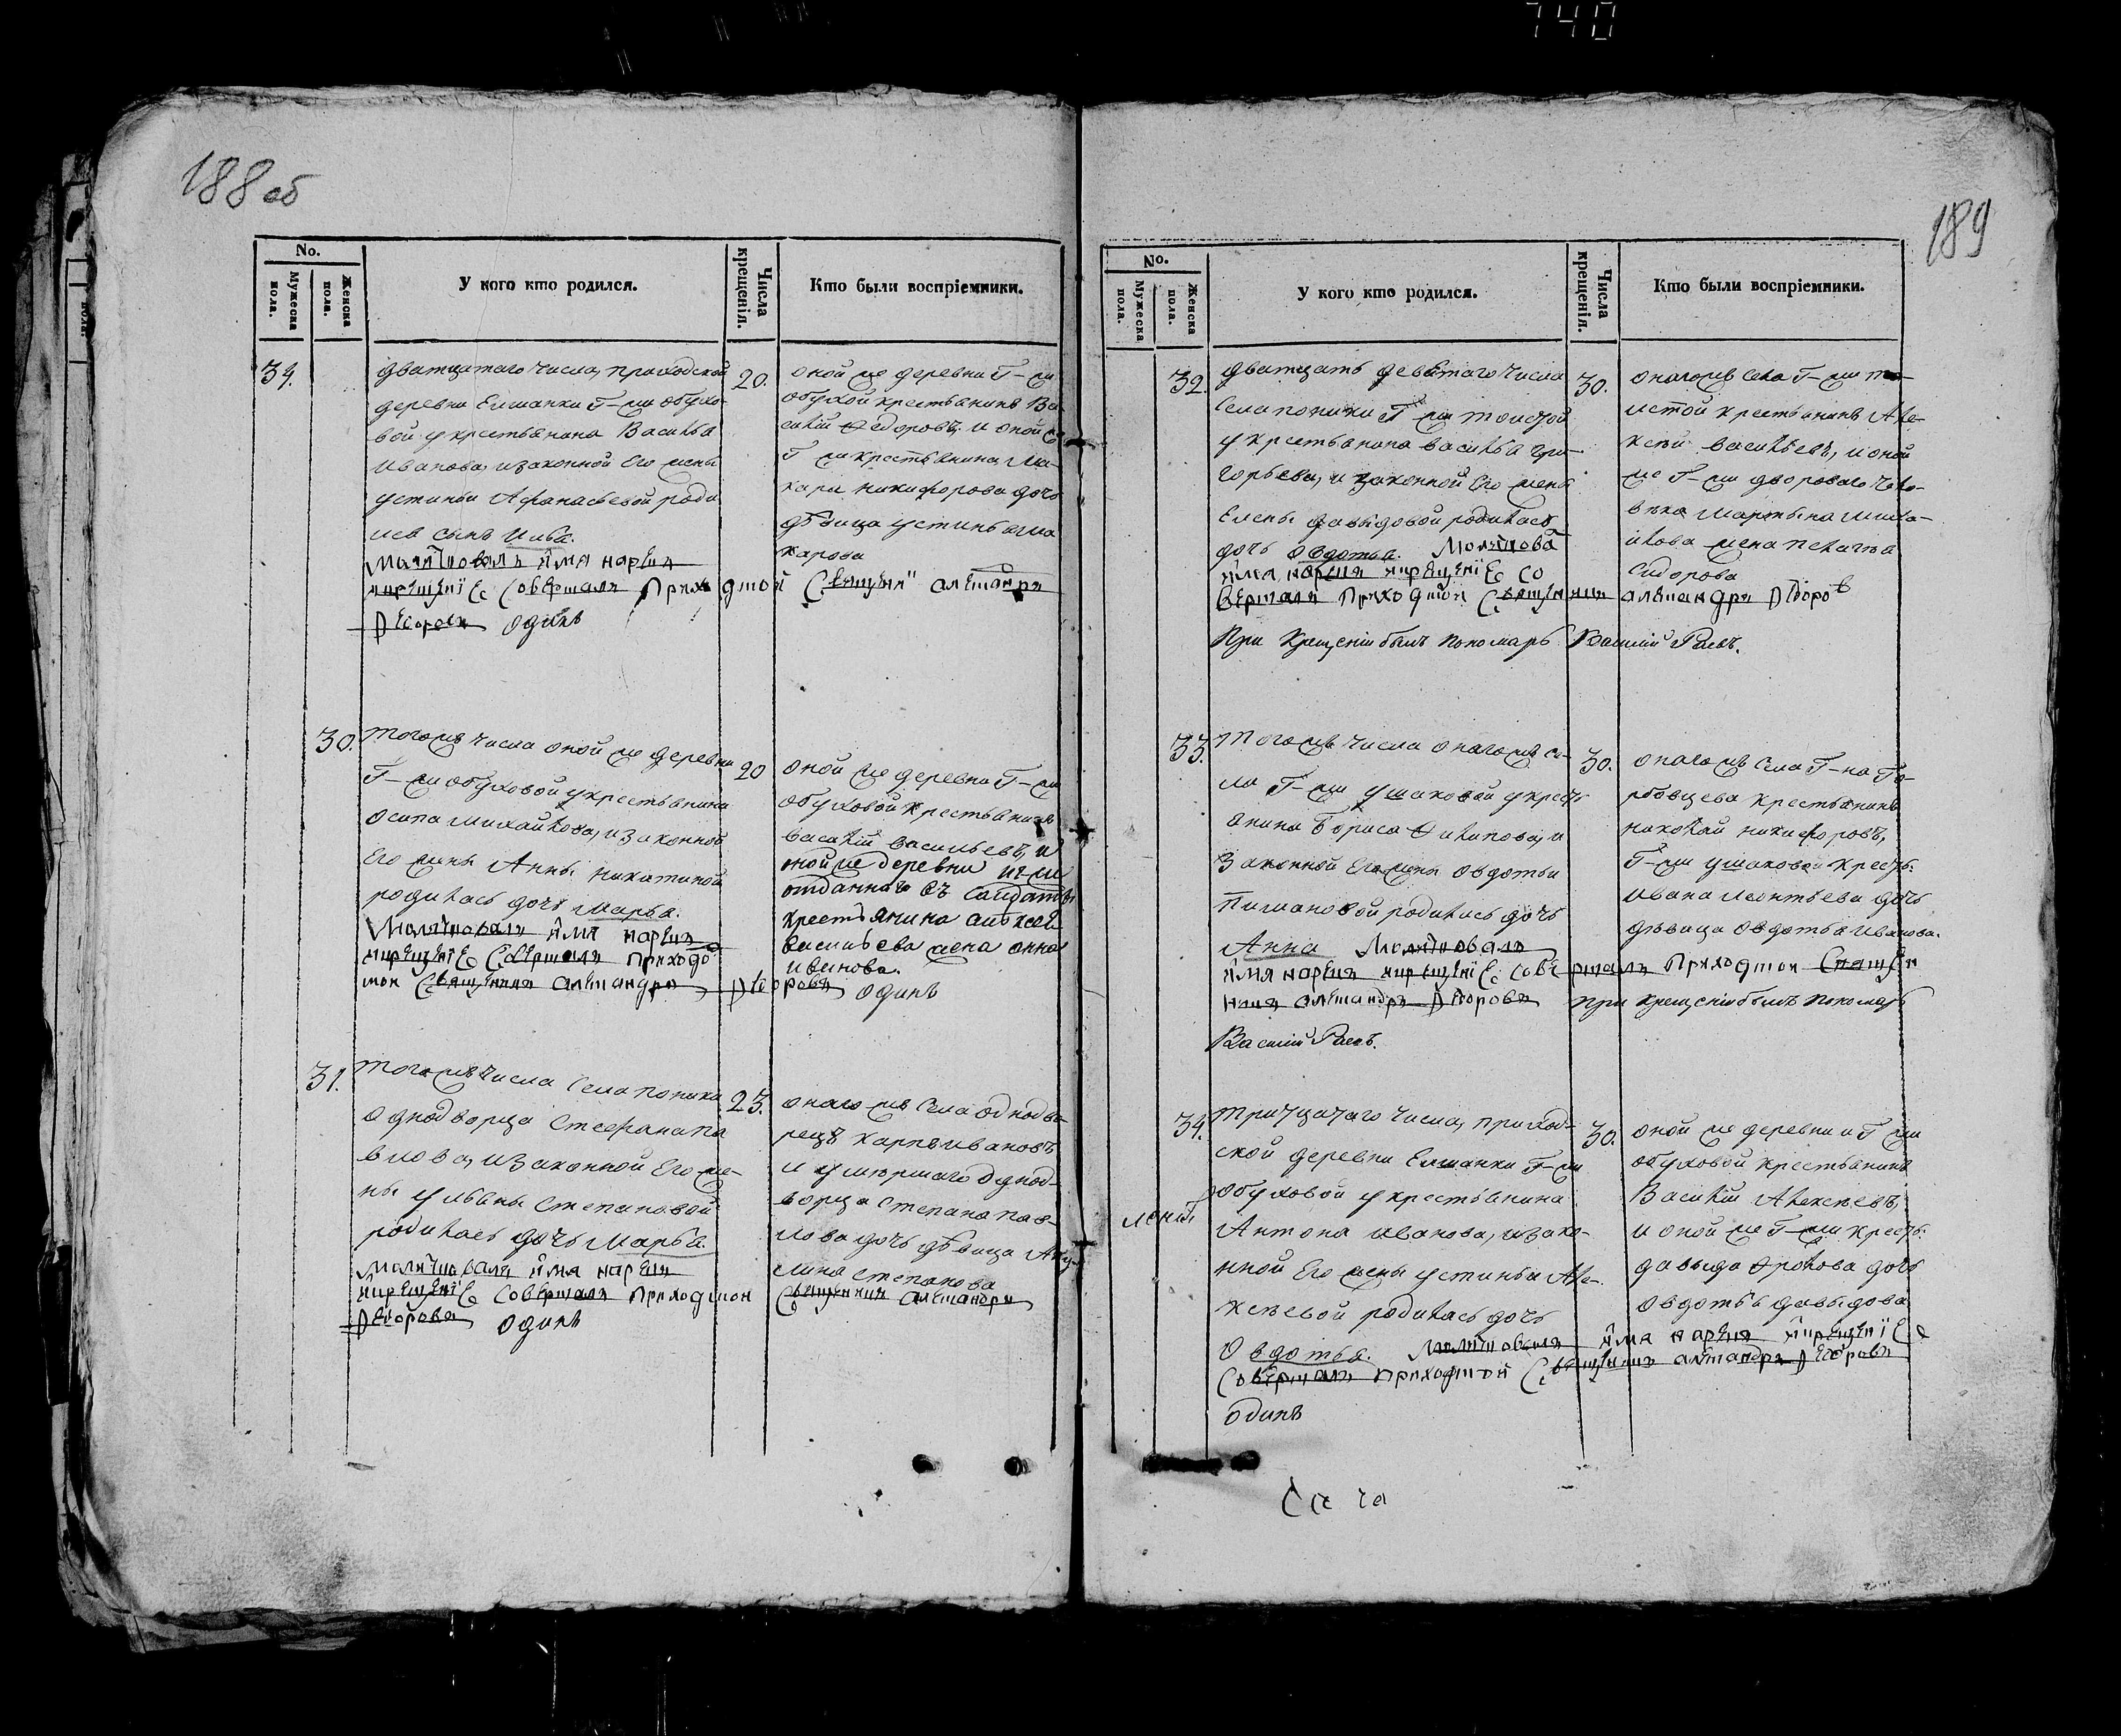 740
188 об
No.
Мужеска пола.
Женска пола.
У кого кто родился.
Числа крещенія.
Кто были воспріемники.
34.
дватцатаго числа, приходской
деревни Елшанки Г-жи обухо-
вой у крестьянина Василья
Иванова, изаконной Его жены
устиньи Афанасьевой роди
лся сынъ Илья.
Молитвовалъ имя нарекъ
икрещение Совершалъ Приходской Священникъ александръ
Егоровъ одинъ
20.
оной же деревни Г-жи
обуховой крестьянинъ Ва
силій Федоровъ. и оной же
Г-жи крестьянина Ма-
кара никифорова дочь
дѣвица устинья ма
карова
30.
Тогожъ числа оной же деревни
Г-жи обуховой укрестьянина
осипа михайлова, изаконной
Его жены Анны никитиной
родилась дочь Марья.
Молитвовалъ имя нарекъ
икрещение Совершалъ приход
ской Священникъ александръ Егоровъ одинъ
20
оной же деревни Г-жи
обуховой крестьянинъ
василій васильевъ, и
оной же деревни и г-жи
отданнаго въ солдаты
крестьянина алексея
васильева жена анна
иванова.
31.
Тогожъ числа села поника
однодворца Стефана па
влова, изаконной Его же-
ны ульяны Степановой
родилась дочь Марья.
Молитвовалъ имя нарекъ
икрещение Совершалъ Приходской Священникъ александръ
Егоровъ одинъ
23.
онаго жъ села однодво
рецъ карпъ ивановъ
и умершаго однод-
ворца степана пав-
лова дочь дѣвица Аку
лина степанова
189
No.
Мужеска пола.
Женска пола.
У кого кто родился.
Числа крещенія.
Кто были воспріемники.
32.
дватцать девятаго числа
Села поники Г-жи толстой
у крестьянина василья гри-
горьева, и законной Его жены
Елены давыдовой родилась
дочь овдотья. Молитвова
имя нарекъ икрещение со
вершалъ Приходской Священникъ александръ Егоровъ
При Крещеніи былъ пономарь Василій Раевъ.
30.
онагожъ села Г-жи то-
лстой крестьянинъ Але-
ксѣй васильевъ, и оной
же Г-жи двороваго чело-
вѣка мартына миха-
илова жена пелагѣа
Сидорова
33.
Тогожъ числа онагожъ се-
ла Г-жи ушаковой укресть
янина Бориса Филипова, и
законной Его жены овдотьи
родилась дочь
Анна Молитвовалъ
имя нарекъ икрещение совершалъ Приходской Священ
никъ александръ Егоровъ при крещеніи былъ пономарь
Василій Раевъ.
30.
онагожъ села Г-на Го-
рбовцева крестьянинъ
николай никифоровъ,
Г-жи ушаковой кресть.
ивана леонтьева дочь
дѣвица овдотья иванова.
34.
Тритцатаго числа, приход-
ской деревни Елшанки Г-жи
обуховой укрестьянина
Антона иванова, изако-
нной Его жены устиньи Але-
ксеевой родилась дочь
Овдотья. Молитвовалъ имя нарекъ икрещение
Совершалъ приходской Священникъ александръ Егоровъ
одинъ
30.
оной же деревни и Г-жи
обуховой крестьянинъ
Василій Алексеевъ,
и оной же Г-жи кресть.
давыда Фролова дочь
овдотья давыдова